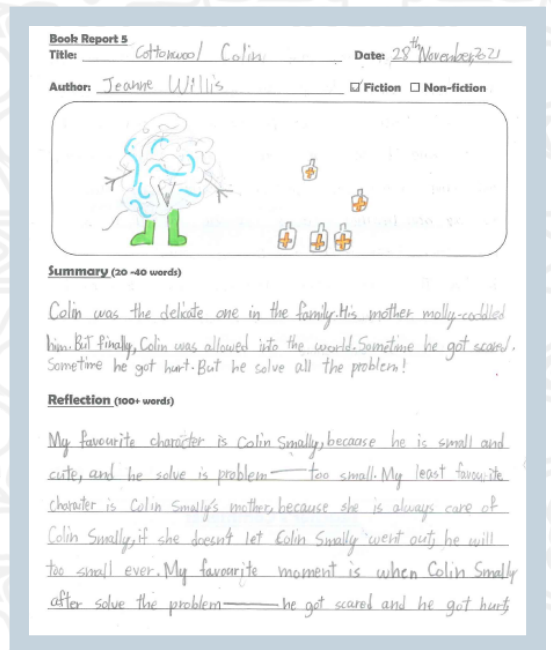 Book Report 5
Title: Cottonwool Colin Date: 28th November, 2021
Author: Jeanne Willis ☑ Fiction ☐ Non-fiction
Summary (20 -40 words)
Colin was the delicate one in the family. His mother molly-coddled
him. But finally, Colin was allowed into the world. Sometime he got scared.
Sometime he got hurt. But he solve all the problem!
Reflection (100+ words)
My favourite character is Colin Smally, because he is small and
cute, and he solve is problem——too small. My least favourite
character is Colin Smally's mother, because she is always care of
Colin Smally, if she doesn't let Colin Smally went out, he will
too small ever. My favourite moment is when Colin Smally
after solve the problem——he got scared and he got hurt,